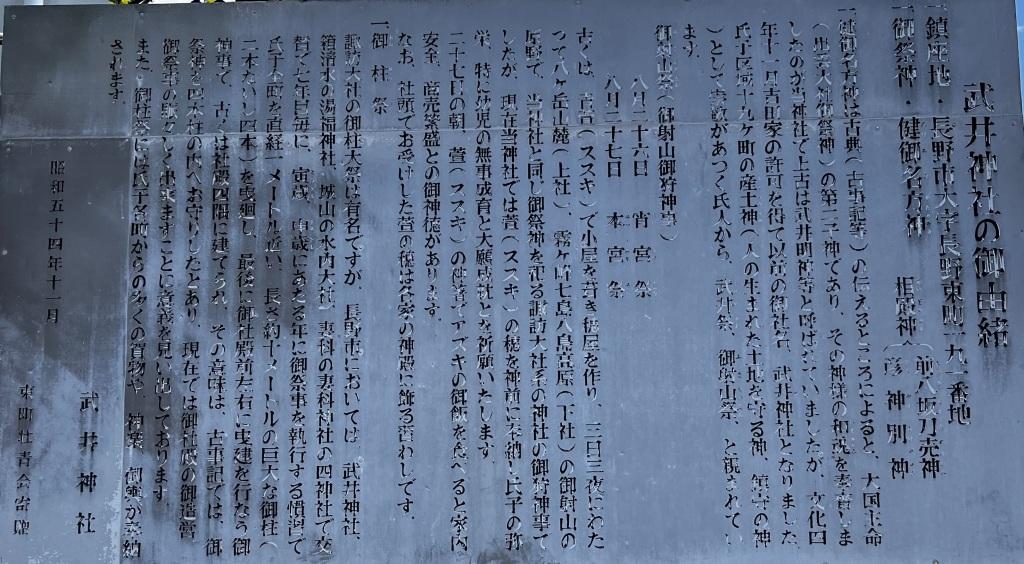 武井神社の御由緒
一鎮座地・長野市大字長野東町一九一番地
一御祭神・健御名方神　相殿神（前八坂刀売神
彦神別神
一健御名方神は古典（古事記等）の伝えるところによると、大国主命
（出雲大社御祭神）の第二子神であり、その神様の和魂を奉斎しま
したのが当神社で上古は武井明神等と呼ばれていましたが、文化四
年十一月吉田家の許可を得て以前の御社名、武井神社となりました
氏子区域十九ヶ町の産土神（人の生まれた土地を守る神、鎮守の神
）として崇敬があつく氏人から、武井祭、御射山祭、と親まれてい
ます。
御射山祭（御射山御狩神事）
八月二十六日　宵宮祭
八月二十七日　本宮祭
古くは、青萱（ススキ）で小屋を葺き穂屋を作り、三日三夜にわた
つて八ヶ岳山麓（上社）、霧ヶ峰七島八島高原（下社）の御射山の
原野で、当神社と同じ御祭神を祀る諏訪大社系の神社の御狩神事で
したが、現在当神社では萱（ススキ）の穂を神前に奉納し氏子の弥
栄、特に幼児の無事成育と大願成就とを祈願いたします。
二十七日の朝、萱（ススキ）の神箸でアズキの御飯を食べると家内
安全、商売繁盛との御神徳があります。
なお、社頭でお受けした萱の穂は各家の神殿に飾る習わしです。
一御柱祭
諏訪大社の御柱大祭は有名ですが、長野市においては、武井神社、
箱清水の湯福神社、城山の水内大社、妻科の妻科神社の四神社で交
替で七年目毎に、寅歳、申歳にあたる年に御祭事を執行する慣習で
氏子各町を直経一メートル近い、長さ約十メートルの巨大な御柱（
二本ないし四本）を曳廻し、最後に御社殿前左右に曳建を行なう御
神事で、古くは社殿四隅に建てられ、その意味は、古事記では、御
祭神を四本柱の内へお守りしたとあり、現在では御社殿の御造営
御祭事の賑々しく出来ますことに意義を見い出しております。
また、御柱祭には氏子各町からの多くの賀物や、神楽、御囃が奉納
されます。
昭和五十四年十一月
武井神社
東町壮青会寄贈